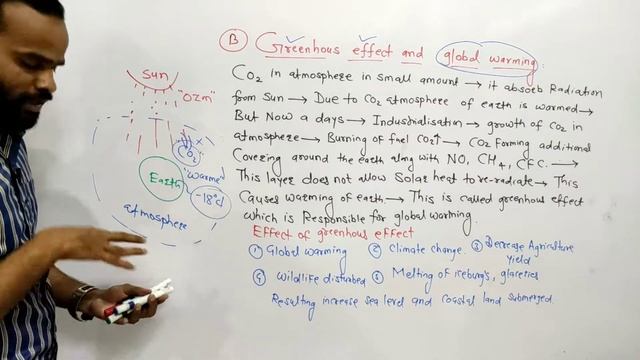 B Greenhous effect and global warming :
CO2 in atmosphere in small amount → it absorb Radiation
from Sun → Due to CO2 atmosphere of earth is warmed →
But Now a days → Industrialisation → growth of CO2 in
atmosphere → Burning of fuel CO2↑ → CO2 Forming additional
Covering around the earth along with NO, CH4, CFC. →
This layer does not allow Solar heat to re-radiate → This
Causes warming of earth → This is called greenhous effect
which is Responsible for global warming.
Effect of greenhous effect
① Global warming ② Climate change. ③ Decrease Agriculture
yield
④ Wildlife disturbed ⑤ Melting of iceburg's, glareties
Resulting increase sea level and coastal land submerged
Sun
"
CO2
Earth
"warme"
-18°c
atmosphere